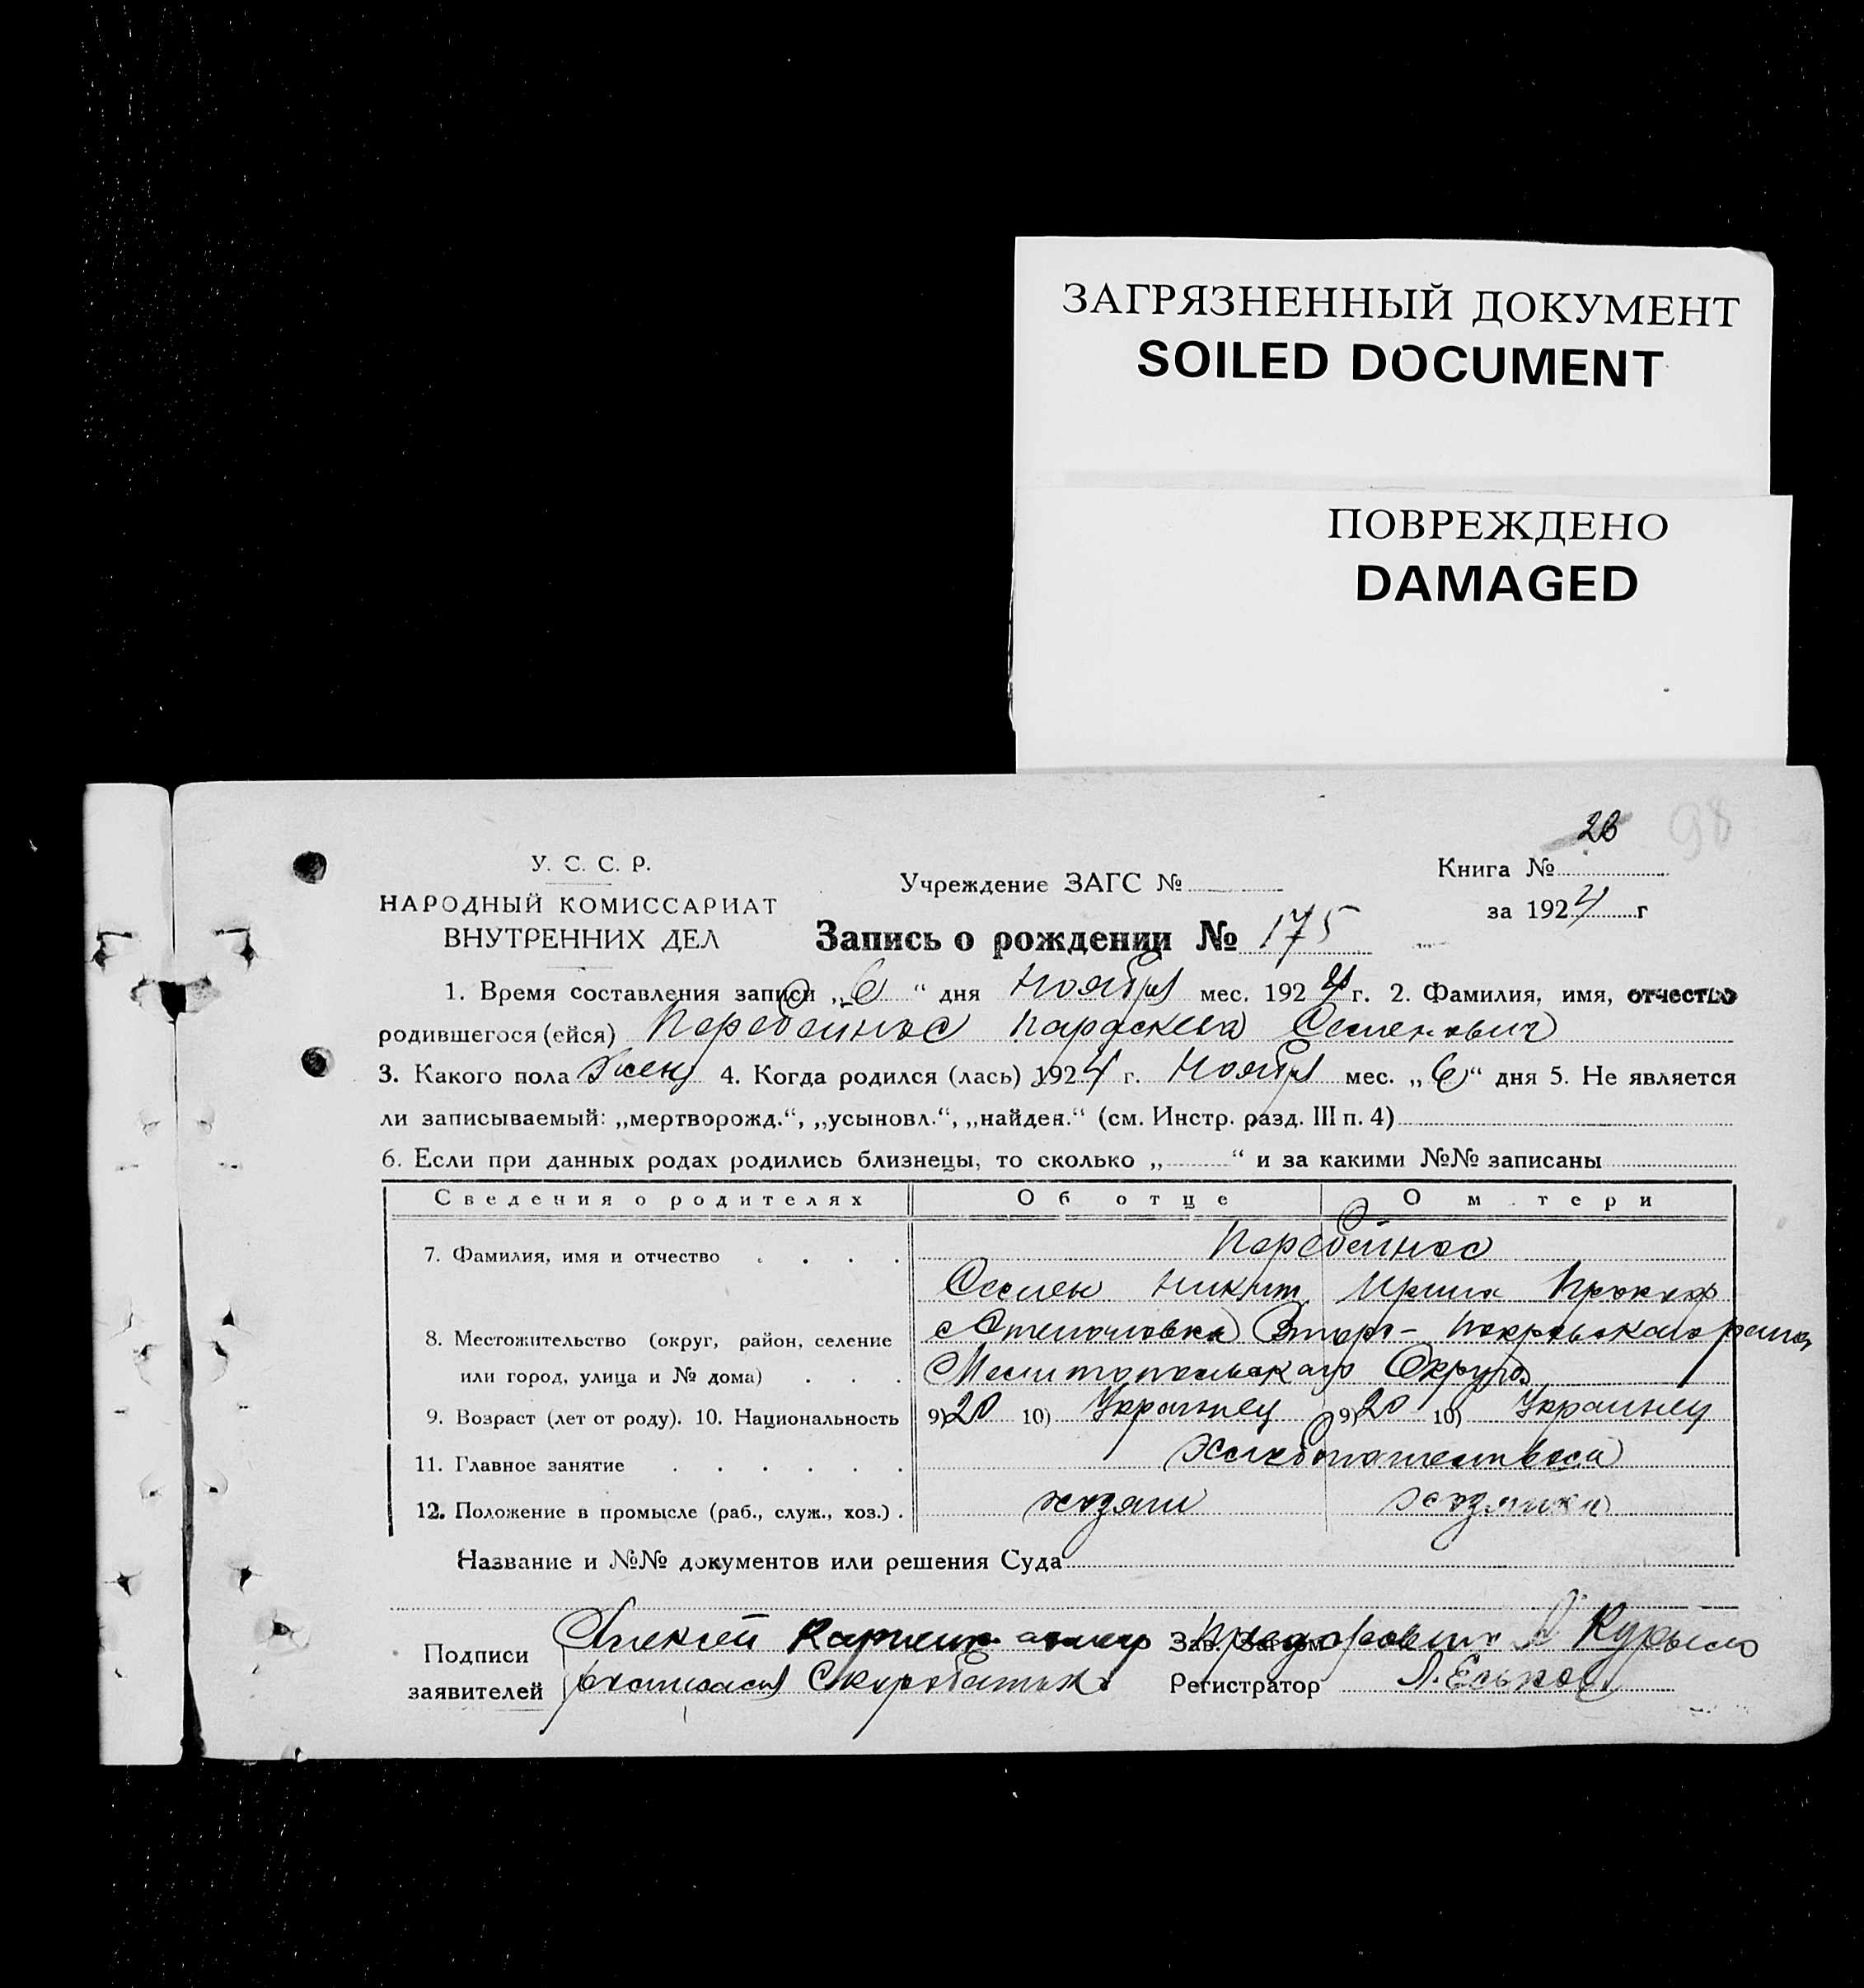 ЗАГРЯЗНЕННЫЙ ДОКУМЕНТ
SOILED DOCUMENT
ПОВРЕЖДЕНО
DAMAGED
98
У. С. С. Р.
НАРОДНЫЙ КОМИССАРИАТ
ВНУТРЕННИХ ДЕЛ
Учреждение ЗАГС №
Книга №
за 1924 г
Запись о рождении № 175
1. Время составления записи „6“ дня Ноября мес. 1924 г. 2. Фамилия, имя, отчество
родившегося (ейся) Перебейнос Параскева Семенович
3. Какого пола Жен 4. Когда родился (лась) 1924 г. Ноября мес. „6“ дня 5. Не является
ли записываемый: „мертворожд.“, „усыновл.“, „найден.“ (см. Инстр. разд. III п. 4)
6. Если при данных родах родились близнецы, то сколько „ “ и за какими №№ записаны
Сведения о родителях Об отце О м тери
7. Фамилия, имя и отчество Перебейнос
Семен Никит Ирина Прокоф
8. Местожительство (округ, район, селение с Степановка Второ-Покровского района
или город, улица и № дома) Мелитопольского Округа
9. Возраст (лет от роду). 10. Национальность 9) 20 10) Украинец 9) 20 10) Украинец
11. Главное занятие Хлебопашество
12. Положение в промысле (раб., служ., хоз.) хозяин хозяйка
Название и №№ документов или решения Суда
Подписи Алексей Зав. Загсом
заявителей расписался Регистратор